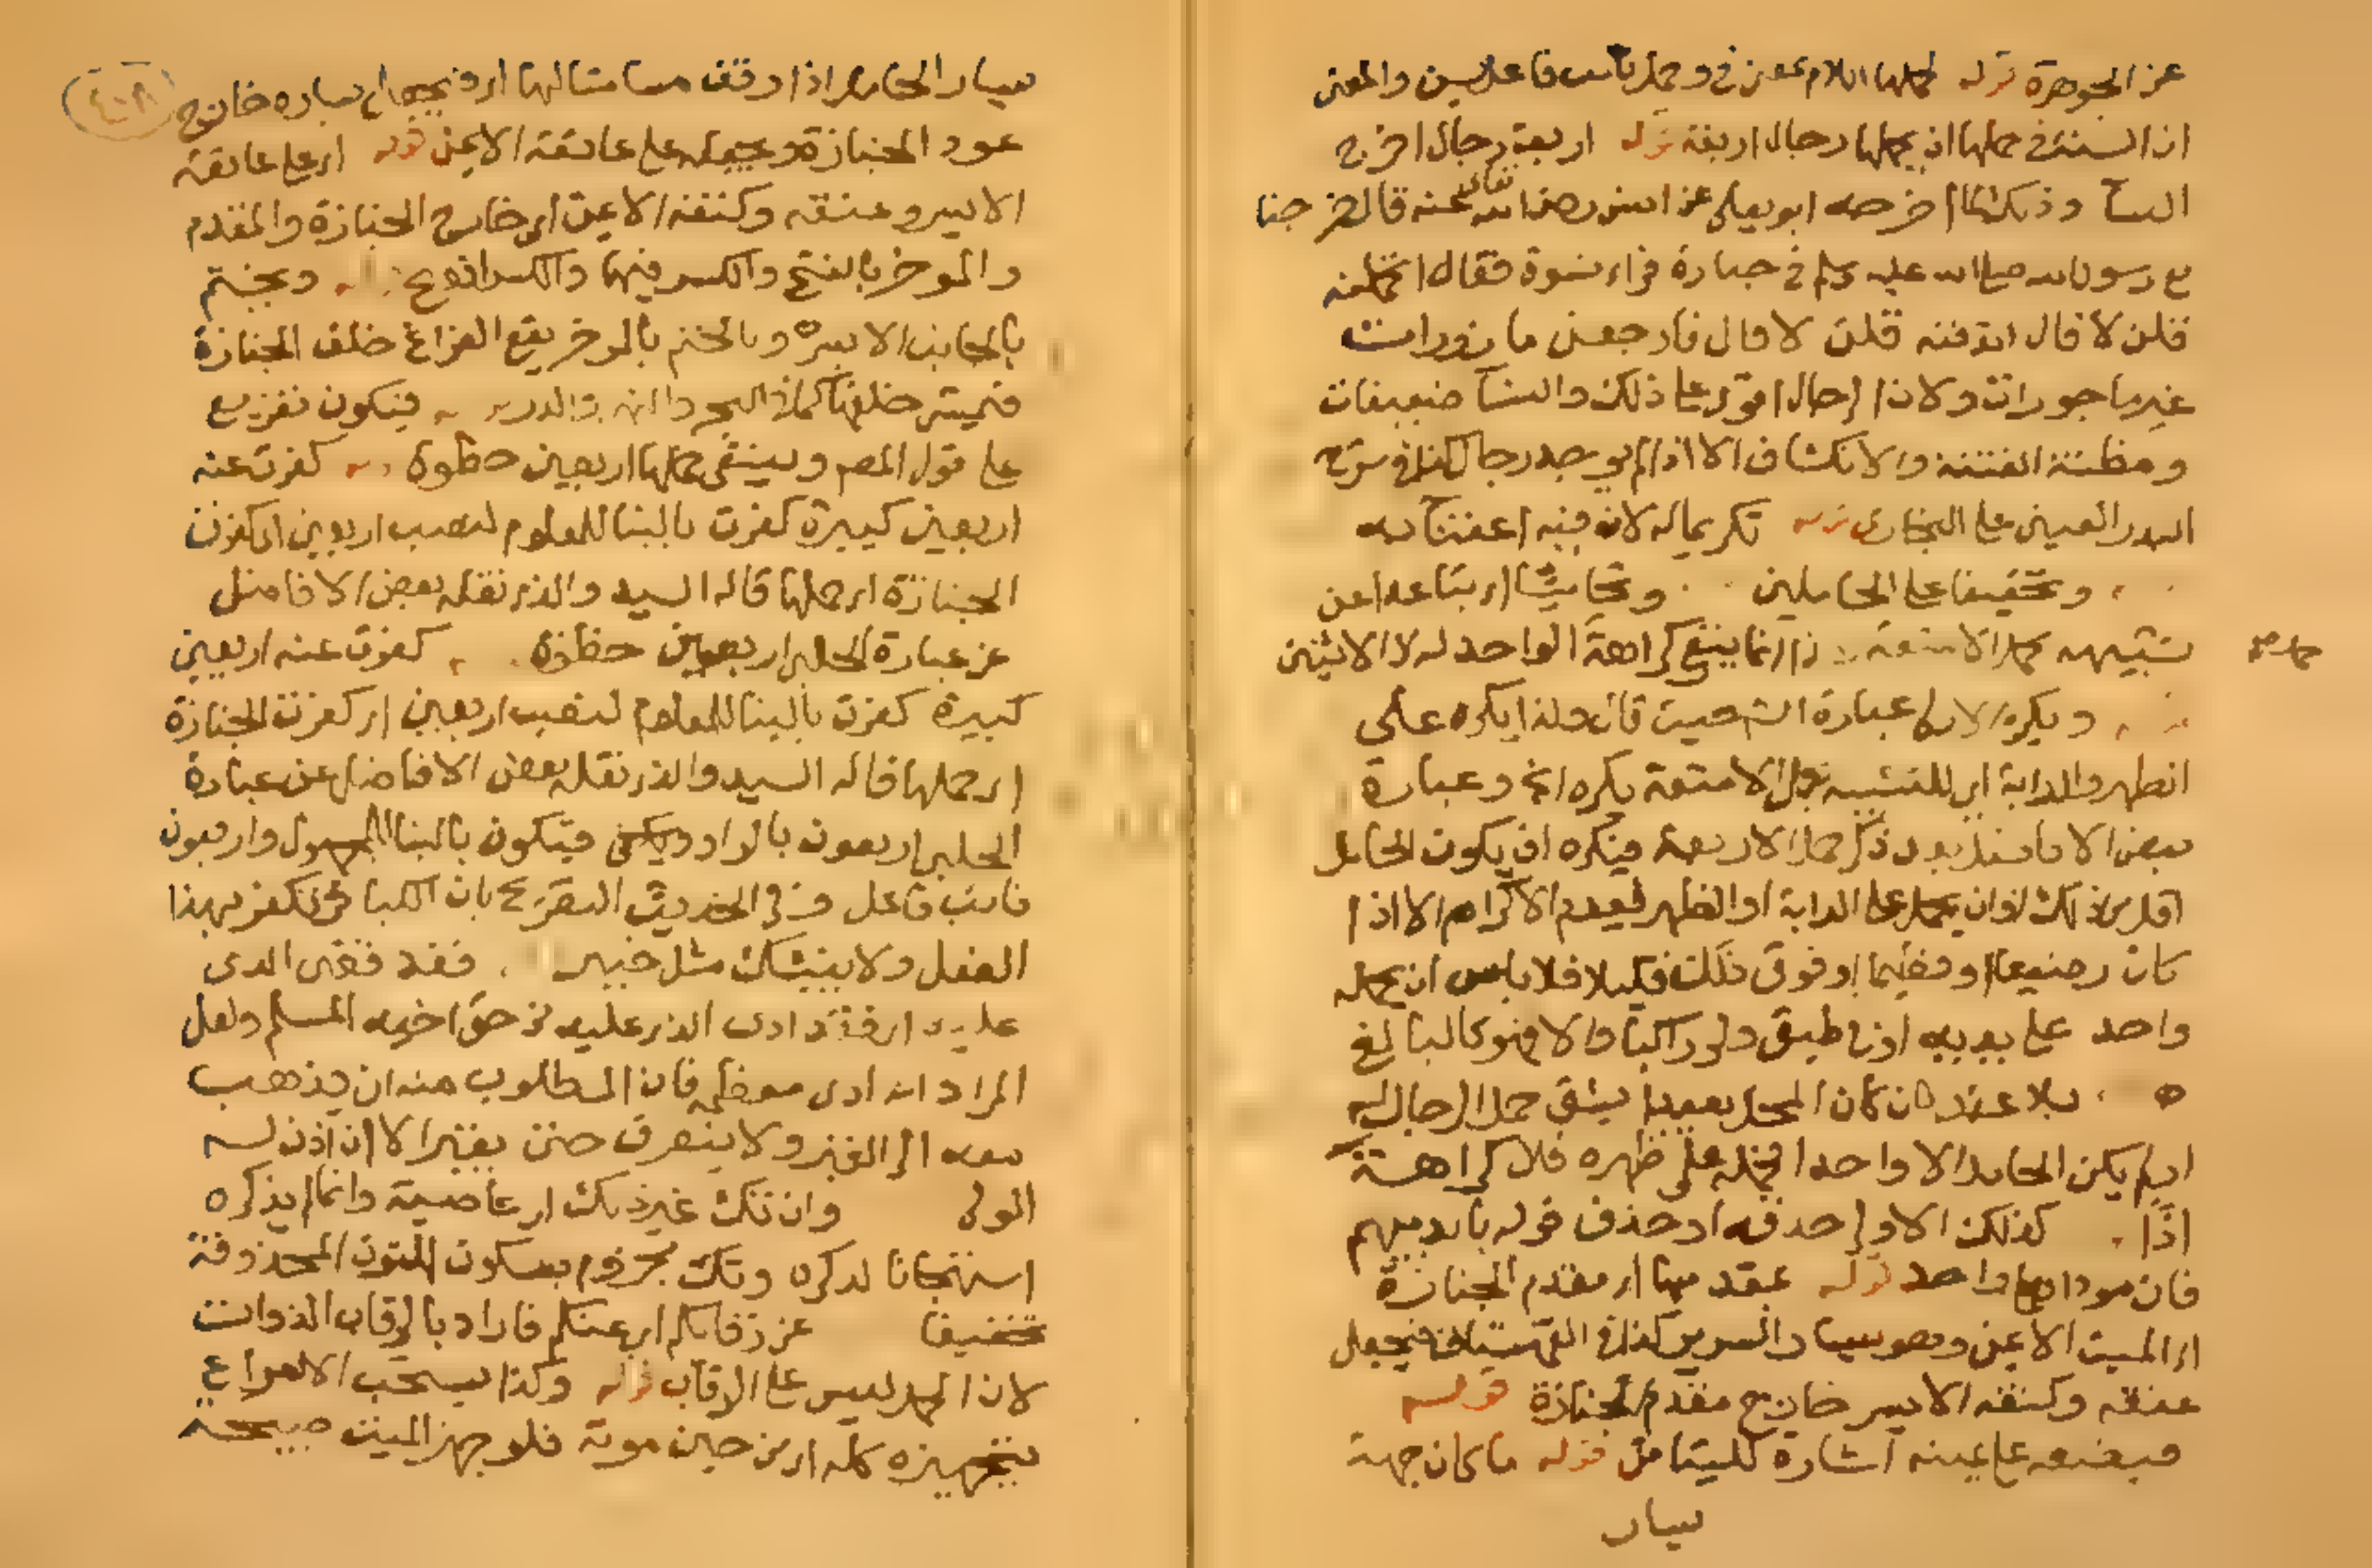 عن الجوهرة قوله لحملها اللام بمعنى في وحمل نائب فاعل يسن والمعنى
ان السنة في حملها ان يحملها رجال اربعة قوله اربعة رجال اخرج
النسآ وذلك لما اخرجه ابو يعلى عن انس رضى الله تعالى عنه قال خرجنا
مع رسول الله صلى الله عليه وسلم في جنازة فراى نسوة فقال اتحملنه
قلن لا قال اتدفنه قلن لا قال فارجعن مازورات
غير ماجورات ولان الرجال اقوى على ذلك والنسآ ضعيفات
ومظنة الفتنة والانكشاف الا اذا لم يوجد رجال كذا في شرح
البدر العينى على البخارى قوله تكريما له لان فيه اعتنآ به
وتخفيفا على الحاملين وتحاشيا اى تباعدا عن
تشبيهه بحمل الامتعة هذا انما ينتج كراهة الواحد له لا الاثنين
ويكره عبارة الشرح حيث قال ولذا يكره على
الظهر والدابة اى للتشبيه بحمل الامتعة يكره الخ وعبارة
بعض الافاضل بعد ذكر حمل الاربعة فيكره ان يكون الحامل
اقل من ذلك او ان يحمل على الدابة او الظهر لعدم الاكرام الا اذا
كان رضيعا او فطيما او فوق ذلك قليلا فلا باس ان يحمله
واحد على يديه اذا طبق ولو راكبا والا فهو كالبالغ
بلا عذر فان كان المحل بعيدا يشق حمل الرجال له
او لم يكن الحامل الا واحدا فحمله على ظهره فلا كراهة
اذا كذلك الاولى حذفه او حذف قوله بايديهم
فان مؤداهما واحد قوله عقد مها اى مقدم الجنازة
اى الميت الايمن وهو يسار السرير كذا في القهستانى فيجعل
عنقه وكتفه الايسر خارج مقدم الجنازة قوله
فيضعه على يمينه اشارة قوله ما كان جهة
يسار
حمل صح
٤٠٨
يسار الحامل اذا وقف اى يجعل يساره خارج
عود الجنازة ويجعله على عاتقه الايمن قوله اى على عاتقه
الايسر وعنقه وكتفه الايمن اى خارج الجنازة والمقدم
والموخر بالفتح والكسر فيهما والكسر افصح قوله ويختم
بالجانب الايسر وبالختم بالموخر يقع الفراغ خلف الجنازة
فيمشى خلفها كما في البحر والنهر والدرر فيكون
على قول المصم وينبغى حملها اربعين خطوة كفرت عنه
اربعين كبيرة كفرت بالبنا للمعلوم لنصب اربعين اى كفرت
الجنازة اى حملها قاله السيد والذى نقله بعض الافاضل
عن عبارة الحلبى اربعين خطوة كفرت عنه اربعين
كبيرة كفرت بالبنا للمعلوم لنصب اربعين اى كفرت الجنازة
اى حملها قاله السيد والذى نقله بعض الافاضل عن عبارة
الحلبى اربعون بالواو فيكون بالبنا للمجهول واربعون
نائب فاعل وفى الحديث التصريح بان الكبائر تكفر بهذا
الفعل ولا ينبئك مثل خبير فقد قضى الذى
عليه اى فقد ادى الذى عليه من حق اخيه المسلم ولعل
المراد انه ادى معظمه فان المطلوب منه ان يذهب
معه الى القبر ولا ينصرف حتى يقبر الا ان اذن له
الولى وان تك غير ذلك اى عاصية وانما لم يذكره
استهجانا لذكره وتك مجزوم بسكون النون المحذوفة
تخفيفا عن رقابكم اى عنكم فاراد بالرقاب الذوات
لان الحمل ليس على الرقاب قوله وكذا يستحب الاسراع
بتجهيزه كله اى من حين موته فلو جهز الميت صبيحة